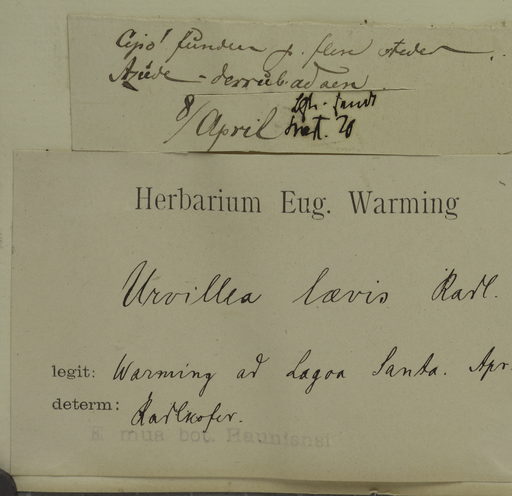 Cipó! funden p. flere steder
Açude - derrubadaen
8/April
Herbarium Eug. Warming
Urvillea lævis Radl.
legit: Warming ad Lagoa Santa. Apr.
determ: Radlkofer.
E mus bot. Hauniensi